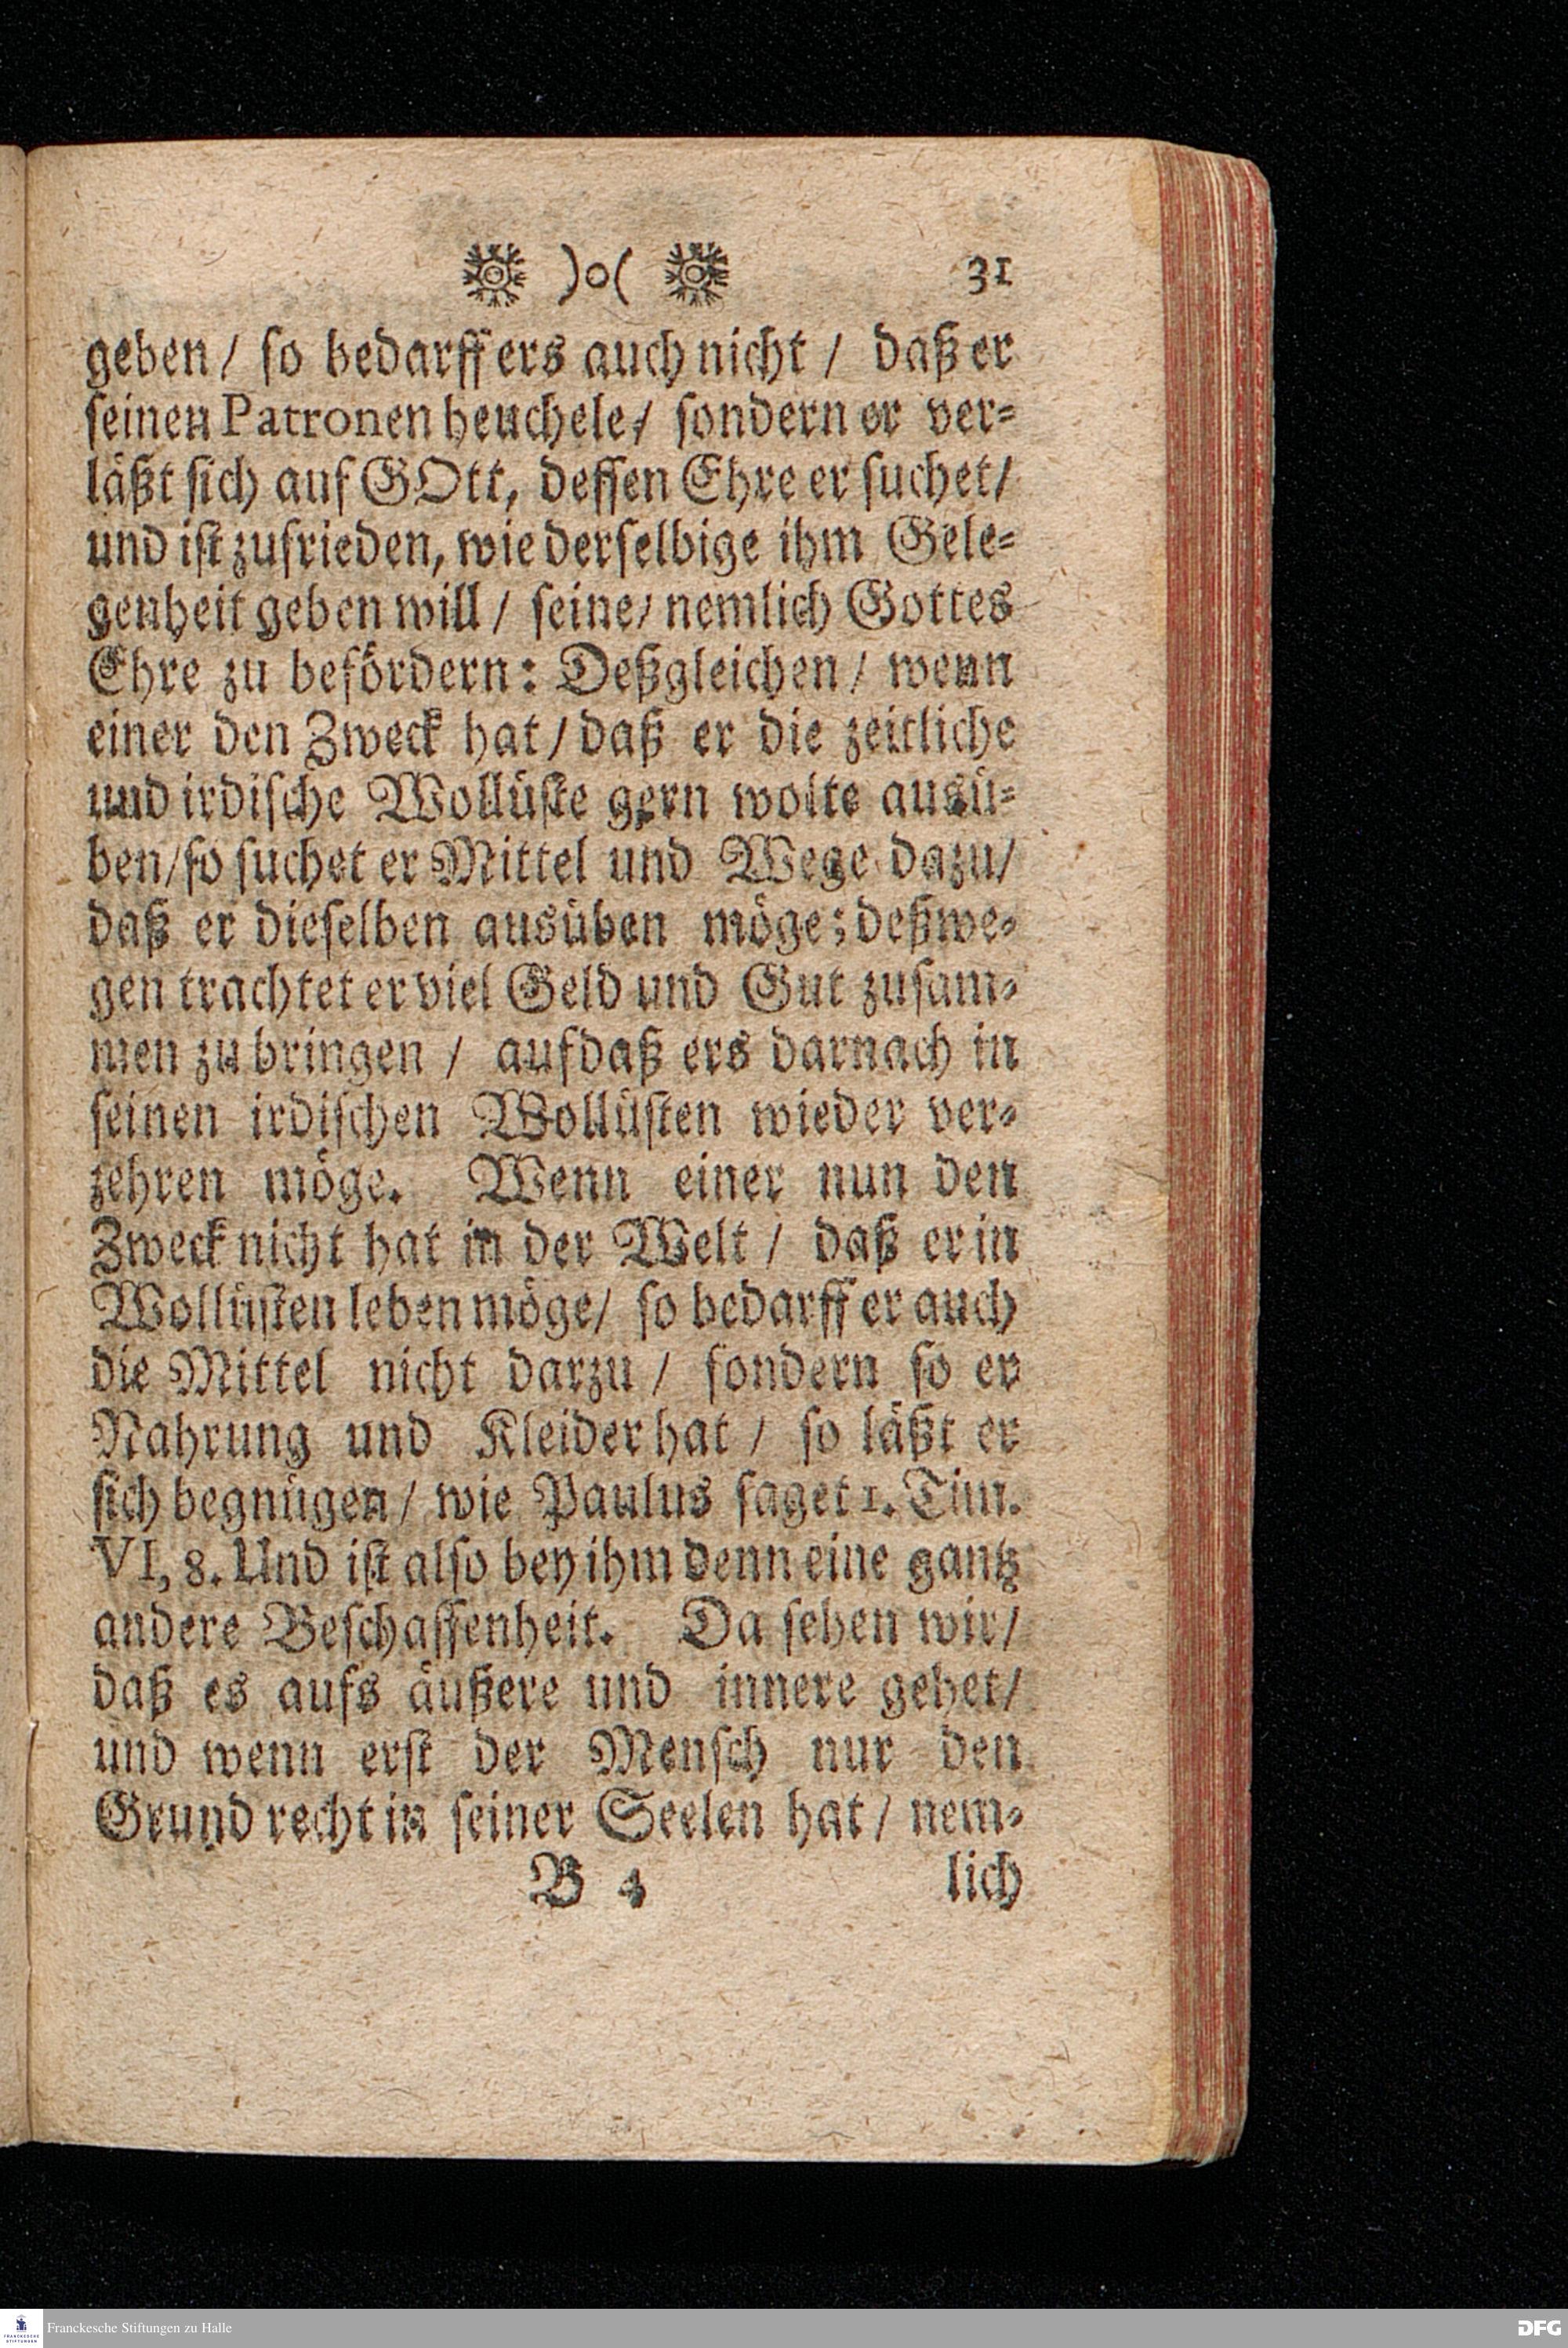 )o( 31
geben / so bedarff ers auch nicht / daß er
seinen Patronen heuchele / sondern er ver-
läßt sich auf GOtt, dessen Ehre er suchet /
und ist zufrieden, wie derselbige ihm Gele-
genheit geben will / seine / nemlich Gottes
Ehre zu befördern: Deßgleichen / wenn
einer den Zweck hat / daß er die zeitliche
und irdische Wollüste gern wolte ausü-
ben / so suchet er Mittel und Wege dazu /
daß er dieselben ausüben möge; deßwe-
gen trachtet er viel Geld und Gut zusam-
men zu bringen / aufdaß ers darnach in
seinen irdischen Wollüsten wieder ver-
zehren möge. Wenn einer nun den
Zweck nicht hat in der Welt / daß er in
Wollüsten leben möge / so bedarff er auch
die Mittel nicht darzu / sondern so er
Nahrung und Kleider hat / so läßt er
sich begnügen / wie Paulus saget 1. Tim.
VI, 8. Und ist also bey ihm denn eine gantz
andere Beschaffenheit. Da sehen wir /
daß es aufs äußere und innere gehet /
und wenn erst der Mensch nur den
Grund recht in seiner Seelen hat / nem-
B 4 lich
Franckesche Stiftungen zu Halle
DFG